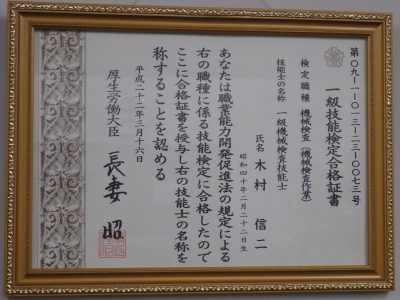 第〇九一一〇一三一二三一〇〇七三号
一級技能検定合格証書
検定職種 機械検査(機械検査作業)
技能士の名称 一級機械検査技能士
氏名 木村 信二
昭和四十年二月二十二日生
あなたは職業能力開発促進法の規定による
右の職種に係る技能検定に合格したので
ここに合格証書を授与し右の技能士の名称を
称することを認める
平成二十二年三月十六日
厚生労働大臣 長妻 昭